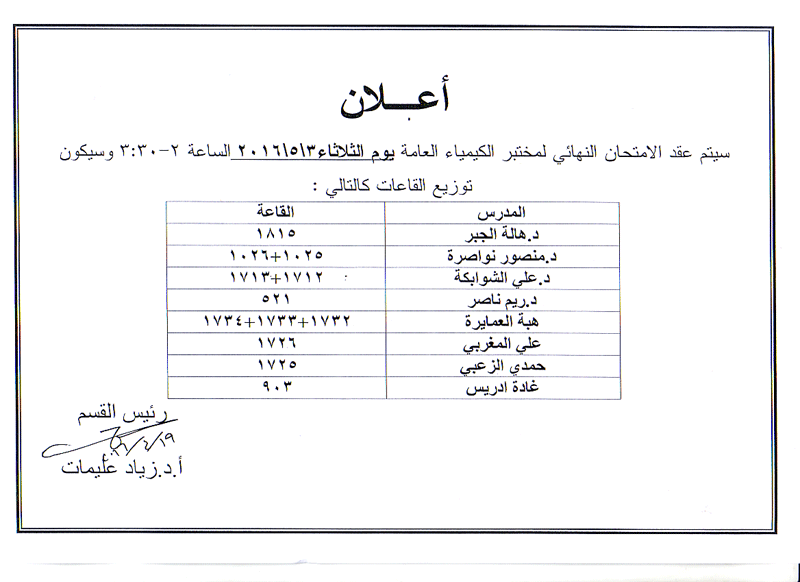 أعـــلان
سيتم عقد الامتحان النهائي لمختبر الكيمياء العامة يوم الثلاثاء٢٠١٦\٥\٣ الساعة ٢-٣:٣٠ وسيكون
توزيع القاعات كالتالي :
المدرس القاعة
د.هالة الجبر ١٨١٥
د.منصور نواصرة ١٠٢٥+١٠٢٦
د.علي الشوابكة ١٧١٢+١٧١٣
د.ريم ناصر ٥٢١
هبة العمايرة ١٧٣٢+١٧٣٣+١٧٣٤
علي المغربي ١٧٢٦
حمدي الزعبي ١٧٢٥
غادة ادريس ٩٠٣
رئيس القسم
١٦/٤/١٩
أ.د.زياد عليمات